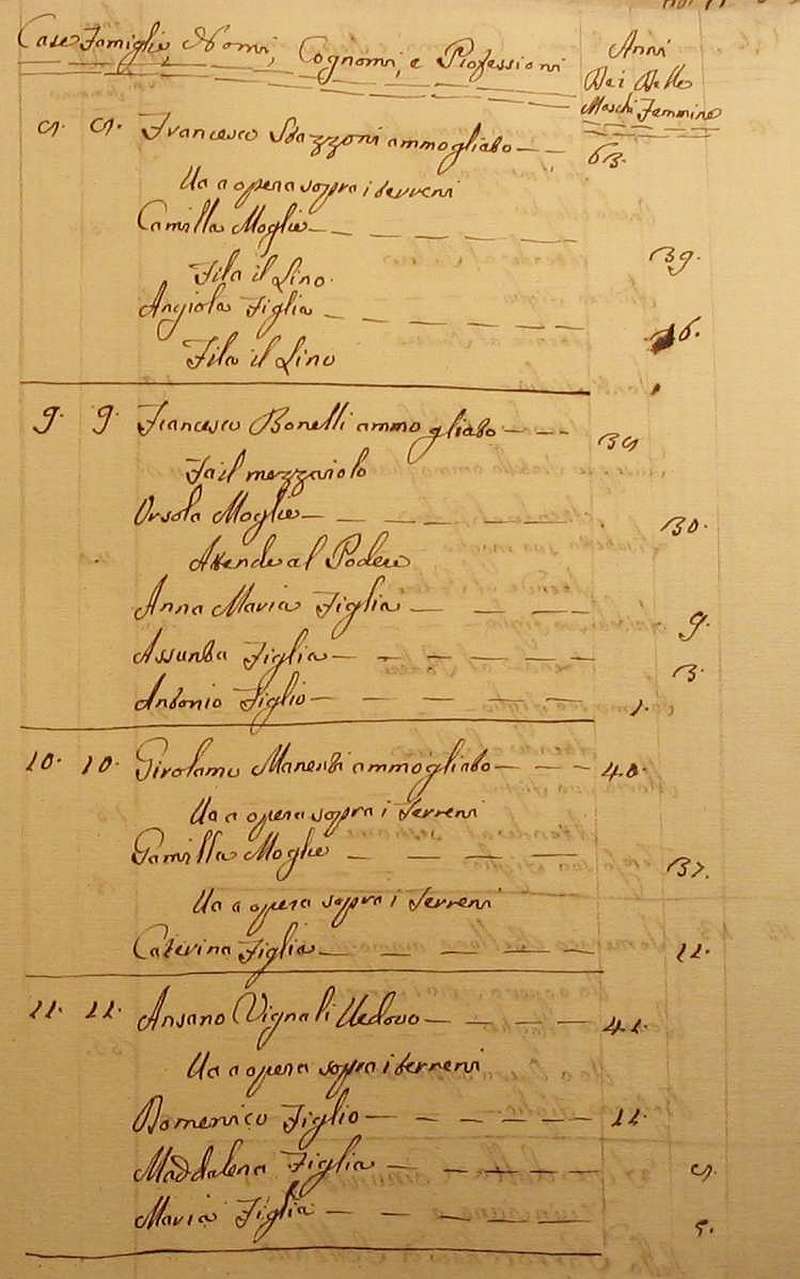 Case Famiglie, Nomi, Cognomi, e Professioni Anni
Dei Delle
Maschi Femmine
8. 8. Francesco Stazzoni ammogliato 63.
Va a opera sopra i terreni
Camilla Moglie 39.
Fila il Lino.
Angiola Figlia 16.
Fila il Lino
9. 9. Francesco Bonelli ammogliato 38
Fa il mezzaiolo
Orsola Moglie 30.
Attende al Podere
Anna Maria Figlia 9.
Assunta Figlia 3.
Antonio Figlio 1.
10. 10. Girolamo Manenti ammogliato 40.
Va a opera sopra i Terreni
Camilla Moglie 37.
Va a opera sopra i Terreni
Caterina Figlia 11.
11. 11. Ansano Vignali Vedovo 41.
Va a opera sopra i terreni
Domenico Figlio 11.
Maddalena Figlia 8
Maria Figlia 5.